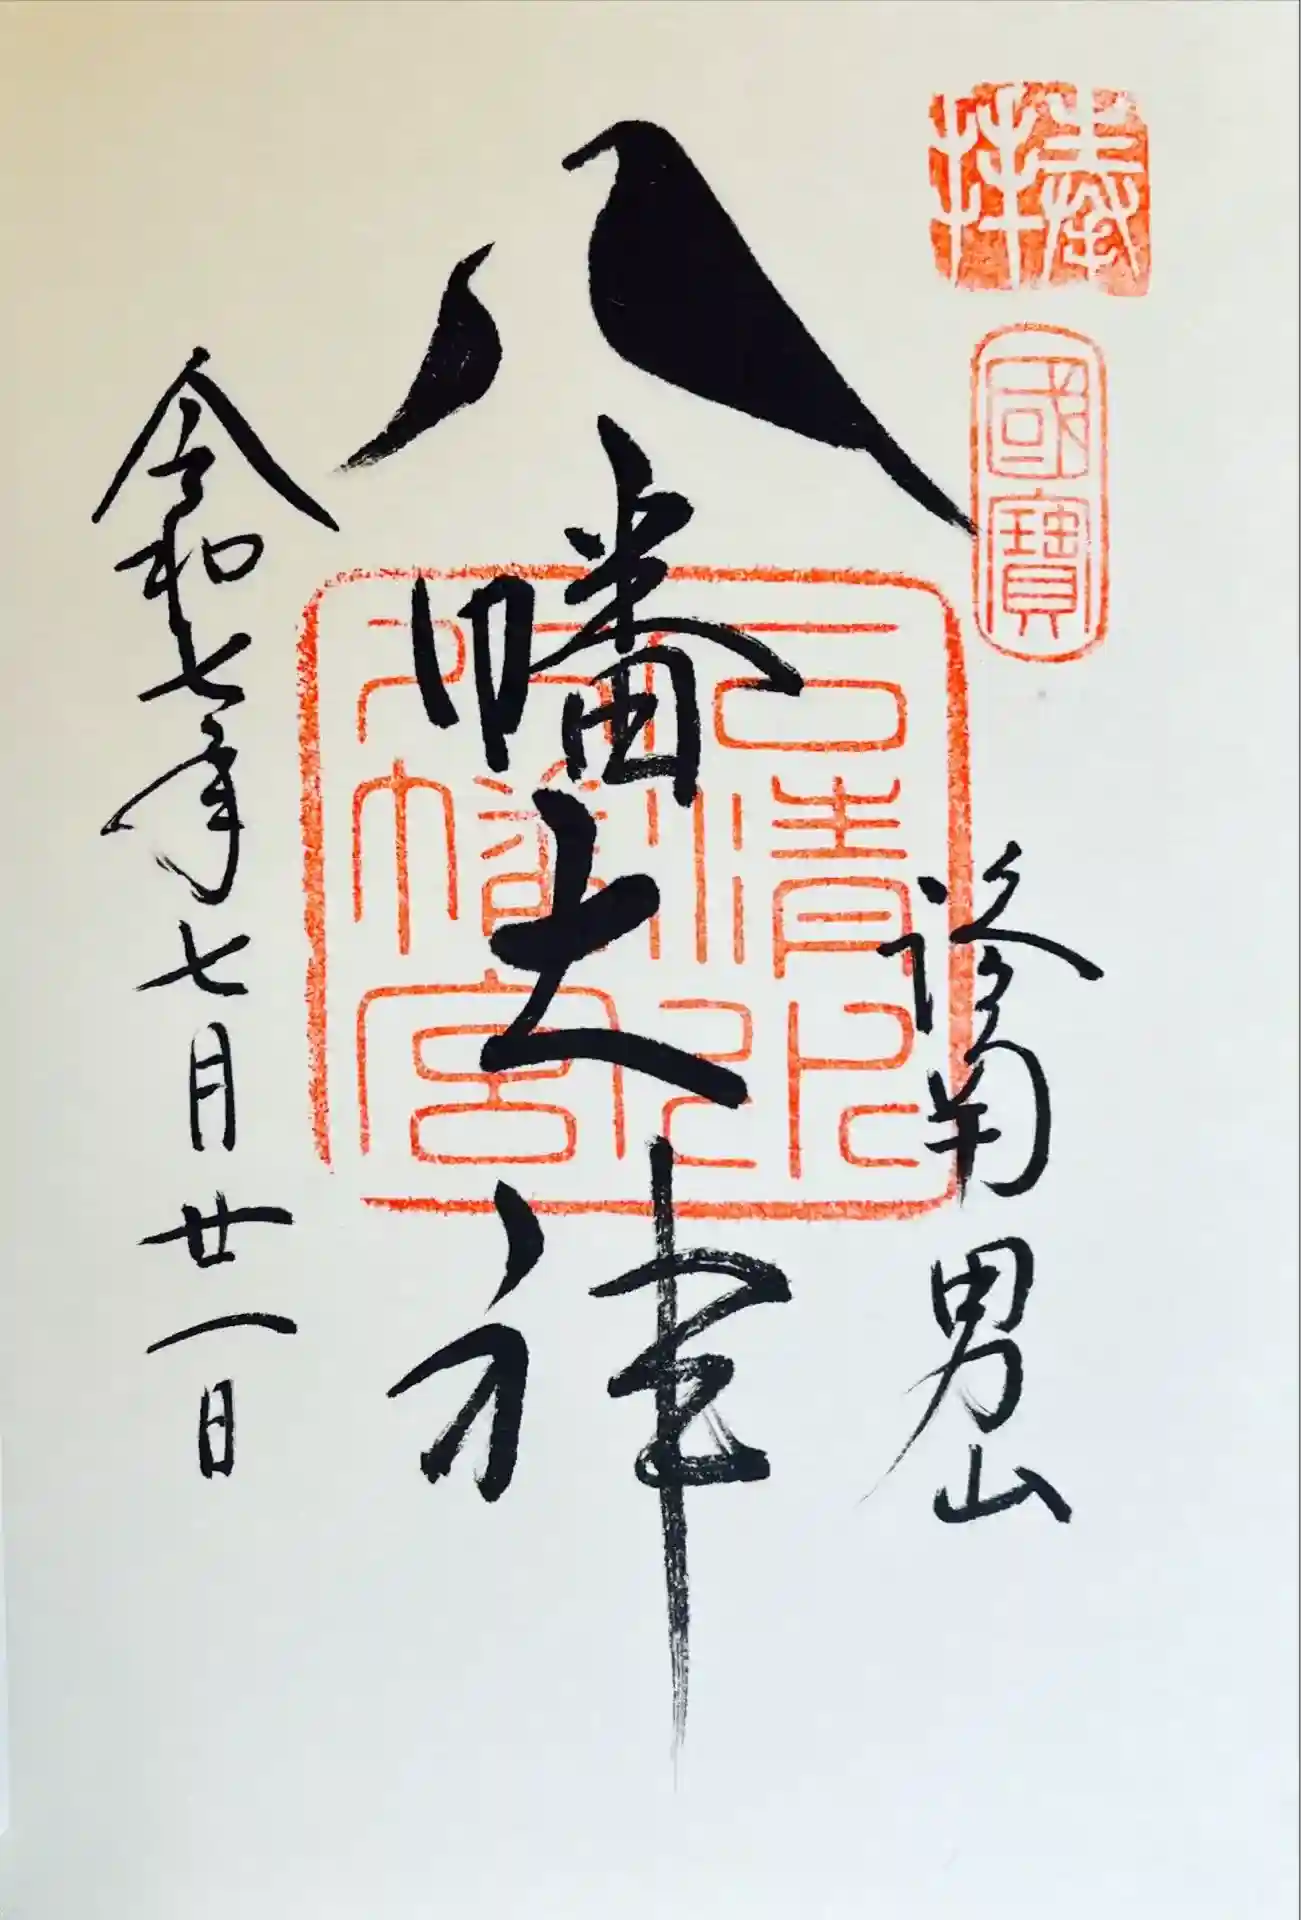 奉拝
國寶
洛南 男山
八幡大神
石清水八幡宮
令和七年七月廿一日